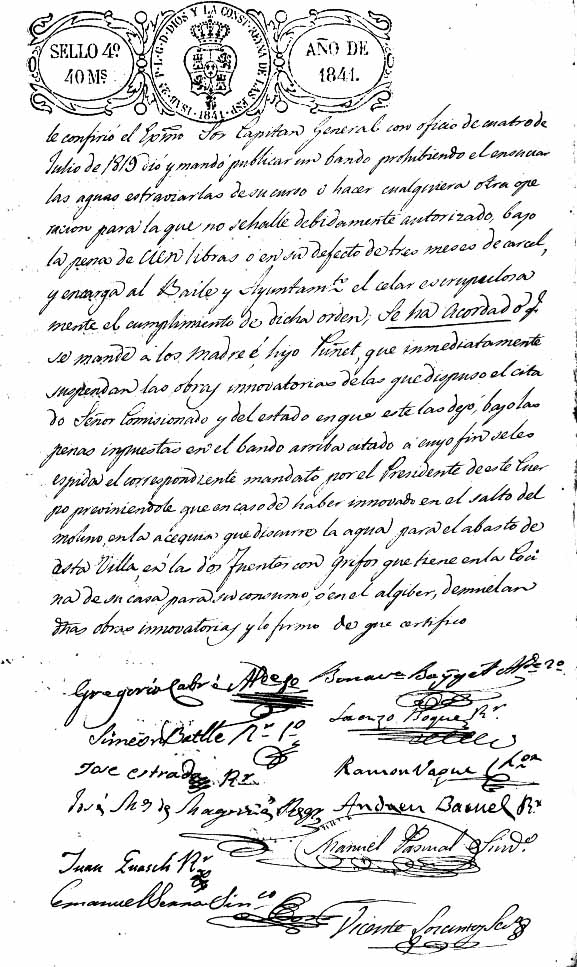 SELLO 4º
40 Ms
YSAB. 2ª P. L. G. D. DIOS Y LA CONST. REYNA DE LAS ESP. 1841.
AÑO DE
1841.
le confirió el Exmo Sor Capitan General con oficio de cuatro de
Julio de 1819 dió y mandó publicar un bando prohibiendo el ensuciar
las aguas estraviarlas de su curso ó hacer cualquiera otra ope
racion para la que no se halle debidamente autorizado, bajo
la pena de cien libras ó en su defecto de tres meses de carcel,
y encarga al Baile y Ayuntamto el celar escrupulosa
mente el cumplimiento de dicha orden; Se ha acordado q.
se mande á los, madre é, hijo Puñet, que inmediatamente
suspendan las obras innovatorias de las que dispuso el cita
do Señor Comisionado y del estado en que este las dejó, bajo las
penas impuestas en el bando arriba citado á cuyo fin se les
espida el correspondiente mandato por el Presidente de este Cuer
po previniendote que en caso de haber innovado en el salto del
molino, en la acequia que discurre la agua para el abasto de
esta Villa, ó á las dos Fuentes con grifos que tiene en la Coci
na de su casa para su consumo, ó en el algiber, demuelan
dhas obras innovatorias y lo firmo de que certifico
Gregorio Cabré Alde 1o Bonava Alde 2o
Simeon Batlle Rr 1o Roque Rr
Jose estrada Rr Ramon Vaque
José Ma de Magriñá Regr Andreu Rr
Manuel Pasqual Sindo
Juan Guasch Rr
Emanuel Serra Sinco
Vicente